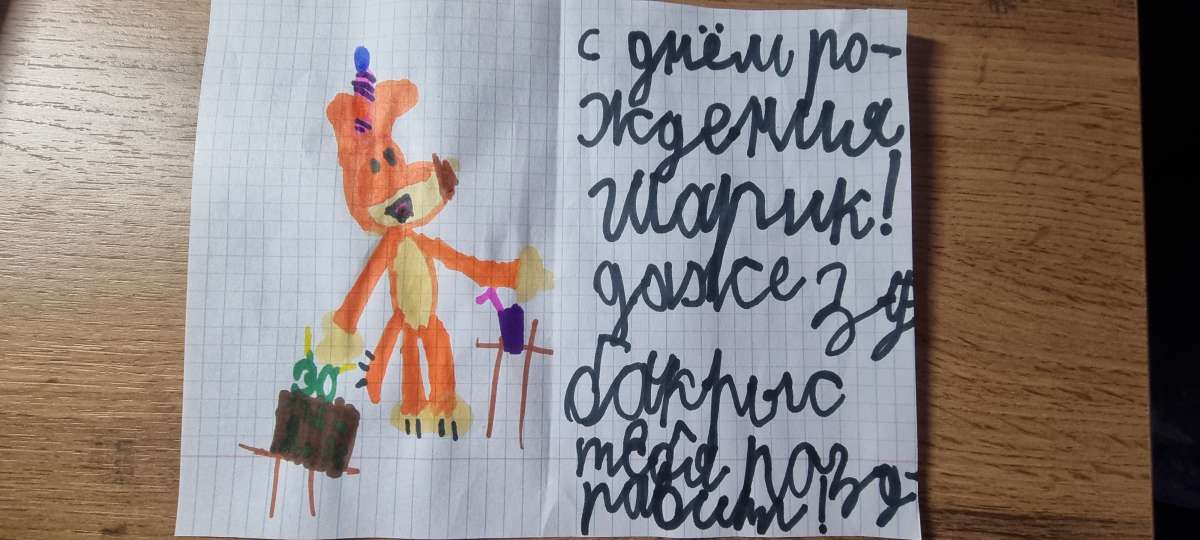 с днём ро-
ждения
Шарик!
даже зу
бакрыс
тебя позд-
равит!
30